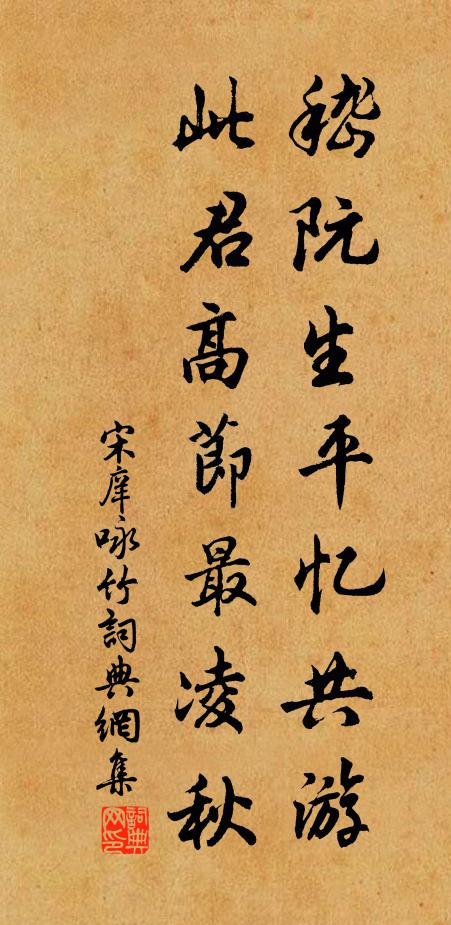 嵇阮生平忆共游
此君高節最凌秋
宋庠咏竹詞典網集
詞典网印